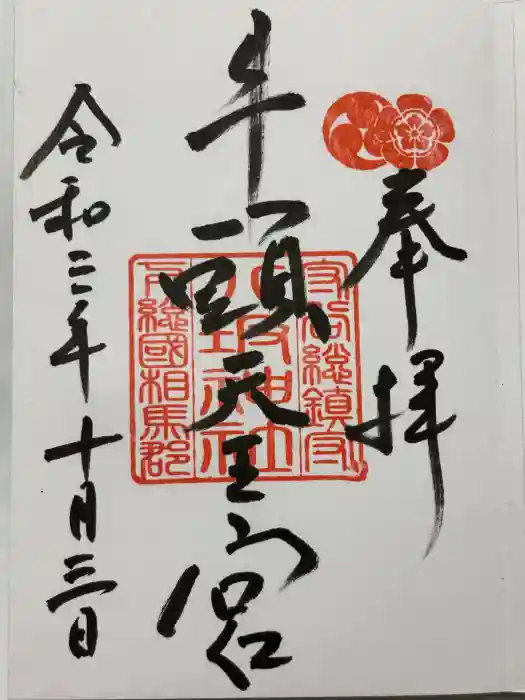 奉拝
牛頭天王宮
令和二年十月三日
守谷総鎮守
八坂神社
下総國相馬郡